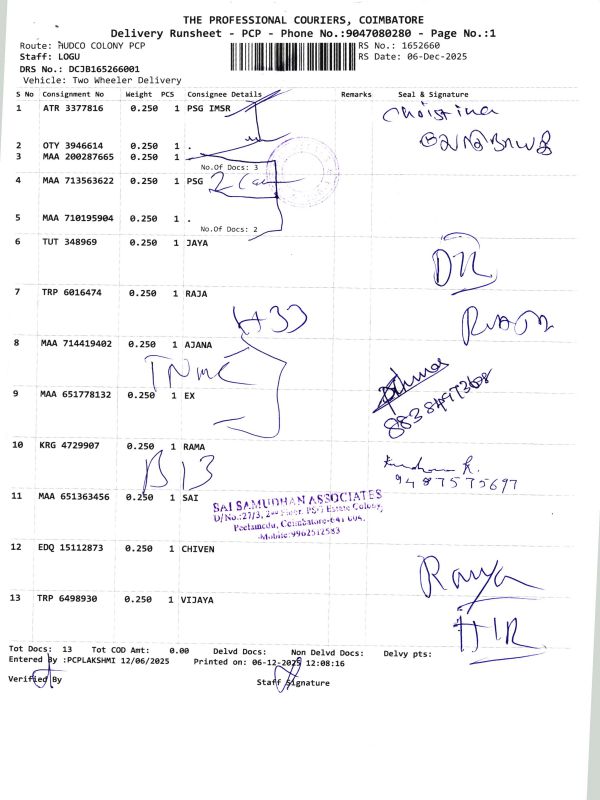 THE PROFESSIONAL COURIERS, COIMBATORE
Delivery Runsheet - PCP - Phone No.:9047080280 - Page No.:1
Route: HUDCO COLONY PCP
RS No.: 1652660
Staff: LOGU
RS Date: 06-Dec-2025
DRS No.: DCJB165266001
Vehicle: Two Wheeler Delivery
S No Consignment No Weight PCS Consignee Details Remarks Seal & Signature
1 ATR 3377816 0.250 1 PSG IMSR
Christina
2 OTY 3946614 0.250 1 .
3 MAA 200287665 0.250 1 .
No.Of Docs: 3
4 MAA 713563622 0.250 1 PSG
5 MAA 710195904 0.250 1 .
No.Of Docs: 2
6 TUT 348969 0.250 1 JAYA
7 TRP 6016474 0.250 1 RAJA
H33
8 MAA 714419402 0.250 1 AJANA
TNMC
9 MAA 651778132 0.250 1 EX
10 KRG 4729907 0.250 1 RAMA
B 13
9487575697
11 MAA 651363456 0.250 1 SAI
SAI SAMUDHAN ASSOCIATES
D/No.:27/3, 2nd Floor, PSG Estate Colony,
Peelamedu, Coimbatore-641 004.
Mobile:9962512583
12 EDQ 15112873 0.250 1 CHIVEN
13 TRP 6498930 0.250 1 VIJAYA
Tot Docs: 13 Tot COD Amt: 0.00 Delvd Docs: Non Delvd Docs: Delvy pts:
Entered By :PCPLAKSHMI 12/06/2025 Printed on: 06-12-2025 12:08:16
Verified By
Staff Signature